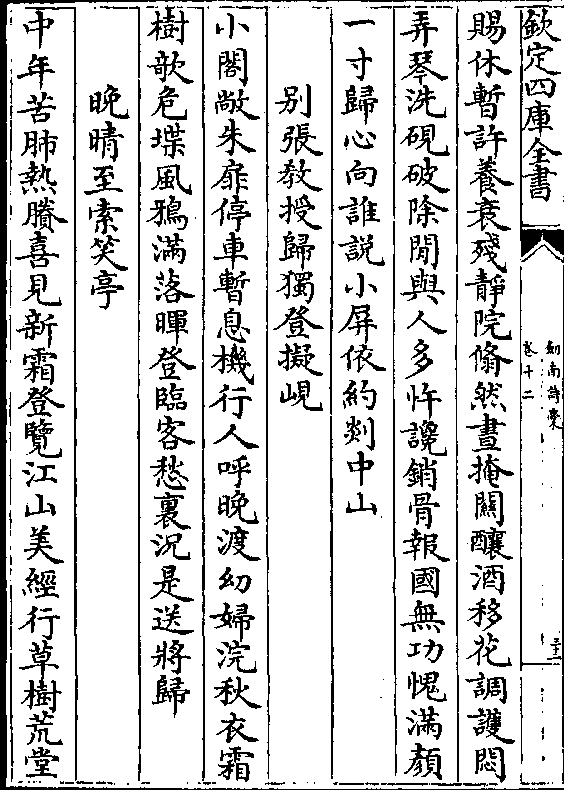 欽定四庫全書
劒南詩稾
卷十二
二十二
賜休暫許養衰殘靜院翛然晝掩關釀酒移花調護悶
弄琴洗硯破除閒與人多忤讒銷骨報國無功愧滿顔
一寸歸心向誰說小屏依約剡中山
别張教授歸獨登擬峴
小閣敞朱扉停車暫息機行人呼晚渡幼婦浣秋衣霜
樹欹危堞風鴉滿落暉登臨客愁裏況是送將歸
晚晴至索笑亭
中年苦肺熱賸喜見新霜登覽江山美經行草樹荒堂